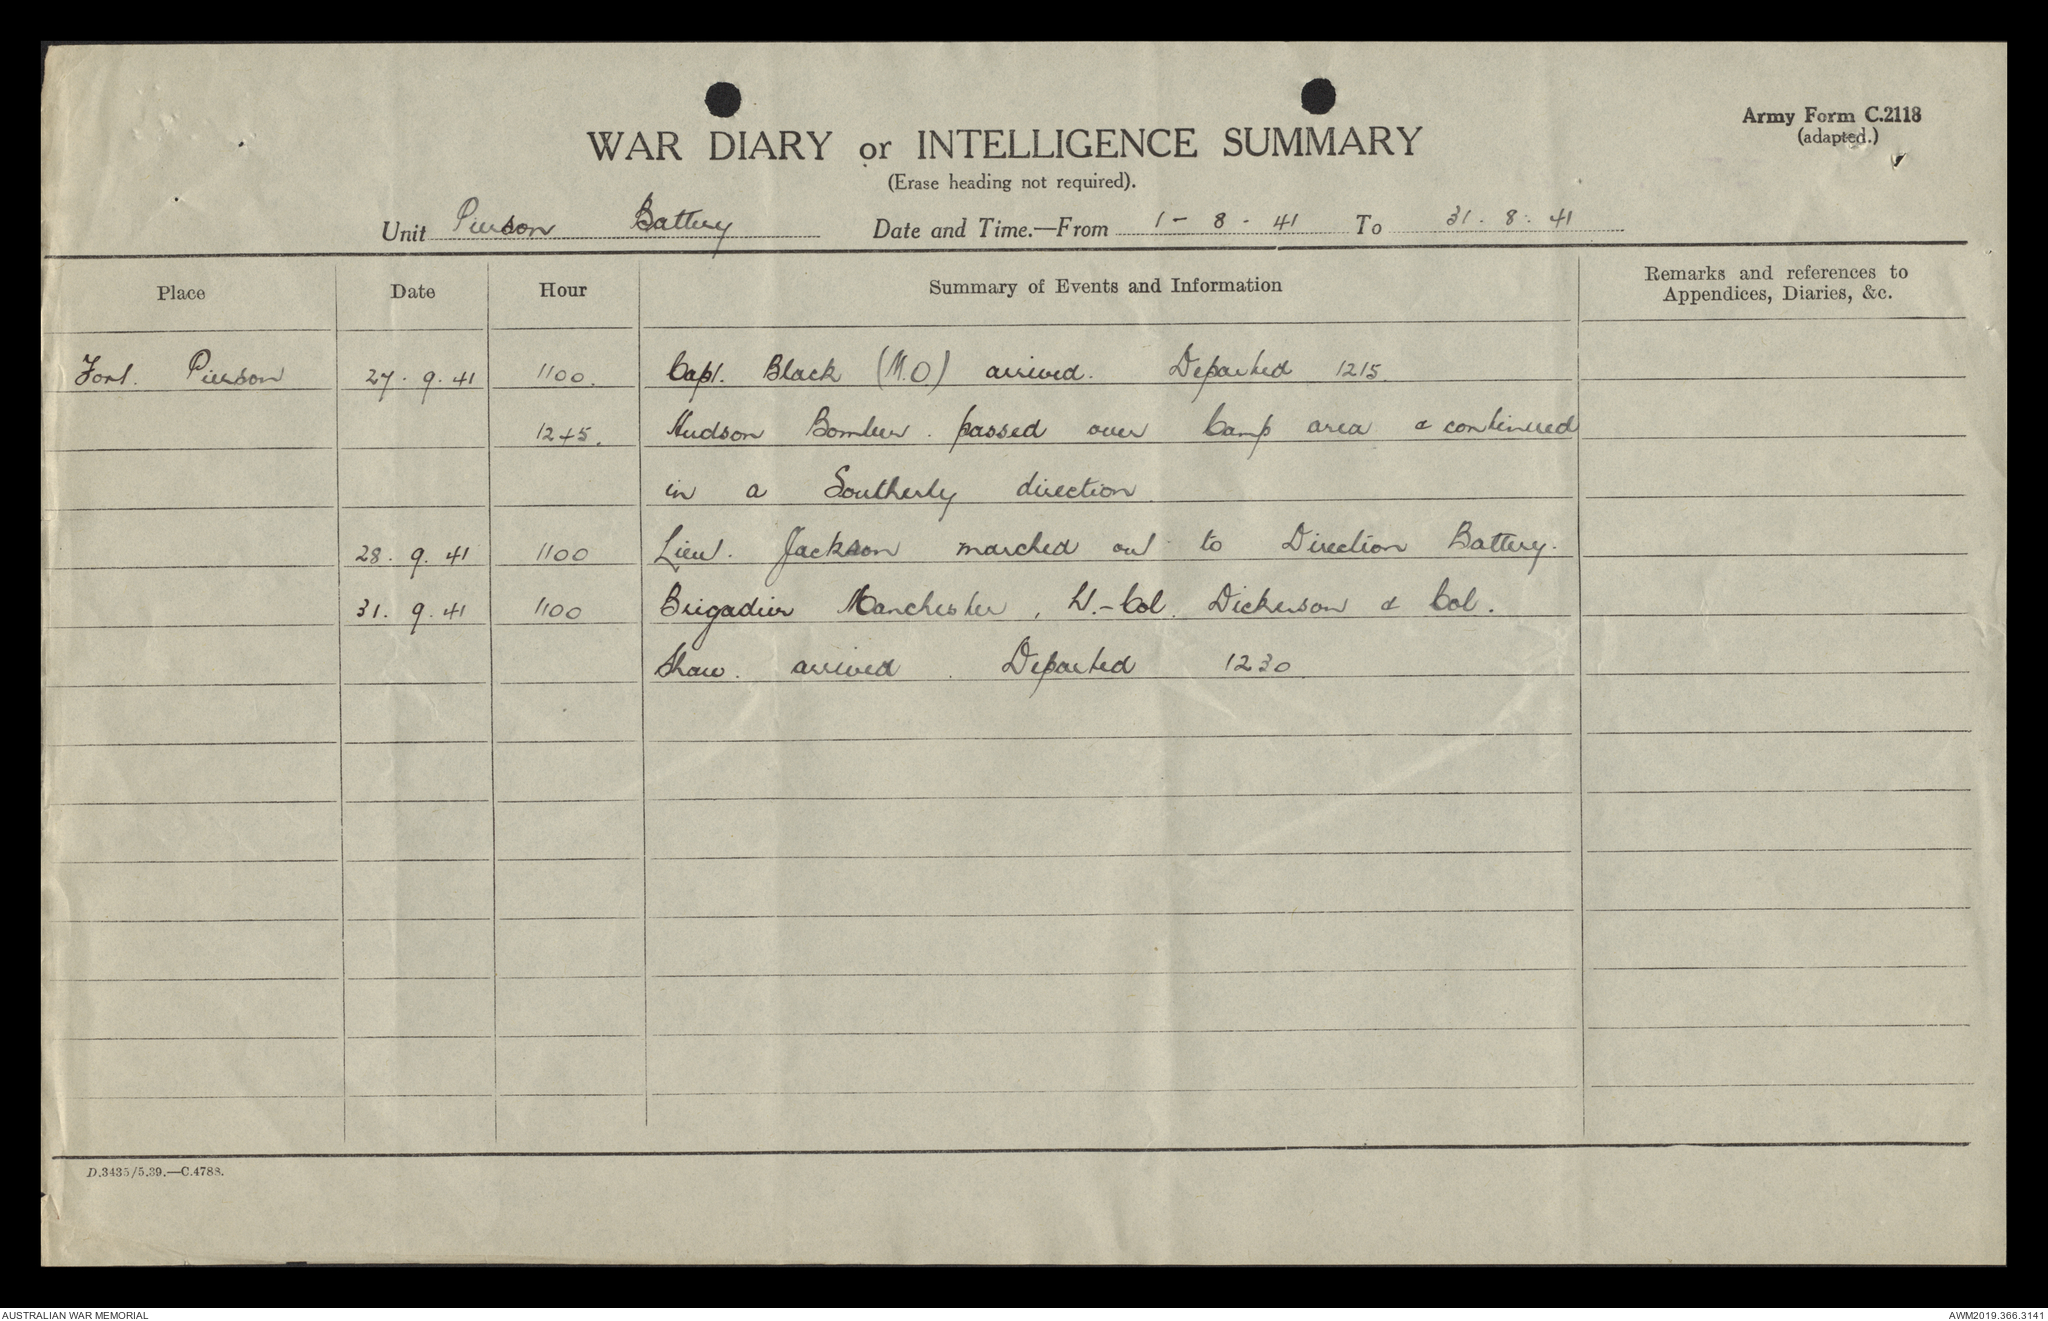 Army Form C.2118
(adapted.)
WAR DIARY or INTELLIGENCE SUMMARY
(Erase heading not required).
Unit Pierson Battery Date and Time.—From 1 - 8 - 41 To 31. 8. 41
Place Date Hour Summary of Events and Information Remarks and references to
Appendices, Diaries, &c.
Fort. Pierson 27. 9. 41 1100. Capt. Black (M.O) arrived. Departed 1215.
1245. Hudson Bomber. passed over Camp area & continued
in a Southerly direction
28. 9. 41 1100 Lieut. Jackson marched out to Direction Battery.
31. 9. 41 1100 Brigadier Manchester, Lt.-Col. Dickerson & Col.
Shaw. arrived. Departed 1230.
D.3435/5.39.—C.4788.
AUSTRALIAN WAR MEMORIAL AWM2019.366.3141